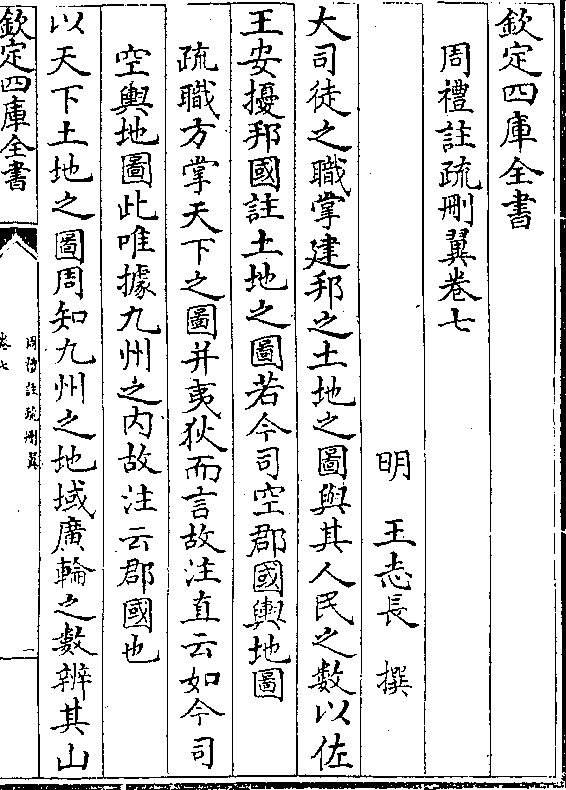 欽定四庫全書
周禮註疏刪翼卷七
明 王志長 撰
大司徒之職掌建邦之土地之圖與其人民之數以佐
王安擾邦國註土地之圖若今司空郡國輿地圖
疏職方掌天下之圖并夷狄而言故注直云如今司
空輿地圖此唯據九州之内故注云郡國也
以天下土地之圖周知九州之地域廣輪之數辨其山
欽定四庫全書
周禮註疏刪翼
卷七
一